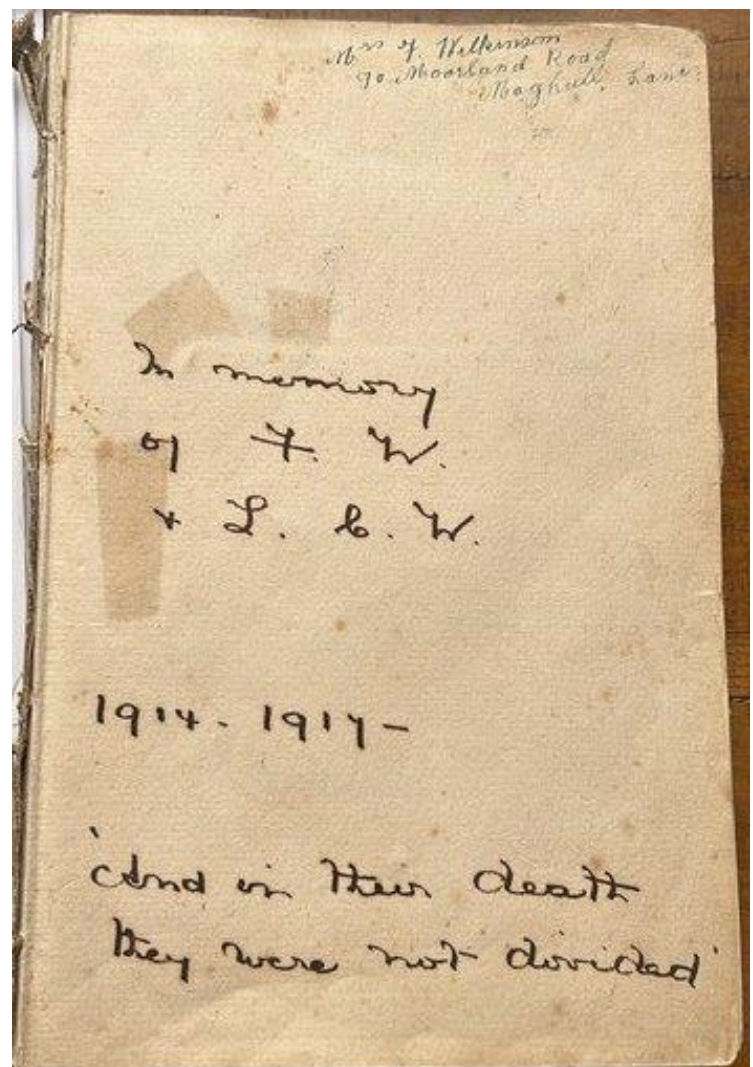 Mrs F. Wilkinson
90 Moorland Road
Maghull. Lancs.
In memory
of F. W.
& L. C. W.
1914 - 1917 -
'And in their death
they were not divided'